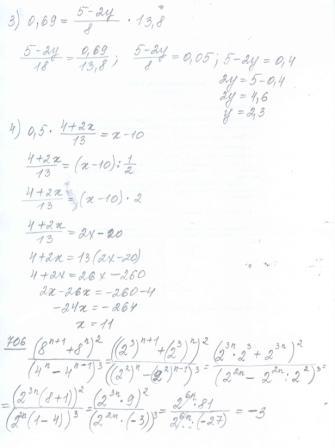 3) 0,69 = (5-2y)/8 · 13,8
(5-2y)/18 = 0,69/13,8 ; (5-2y)/8 = 0,05 ; 5-2y = 0,4
2y = 5-0,4
2y = 4,6
y = 2,3
4) 0,5 · (4+2x)/13 = x-10
(4+2x)/13 = (x-10) : 1/2
(4+2x)/13 = (x-10) · 2
(4+2x)/13 = 2x-20
4+2x = 13(2x-20)
4+2x = 26x-260
2x-26x = -260-4
-24x = -264
x = 11
706 (8^(n+1)+8^n)^2/(4^n-4^(n-1))^3 = ((2^3)^(n+1)+(2^3)^n)^2/((2^2)^n-(2^2)^(n-1))^3 = (2^(3n)·2^3+2^(3n))^2/(2^(2n)-2^(2n):2^2)^3 =
= (2^(3n)(8+1))^2/(2^(2n)(1-4))^3 = (2^(3n)·9)^2/(2^(2n)·(-3))^3 = 2^(6n)·81/2^(6n)·(-27) = -3